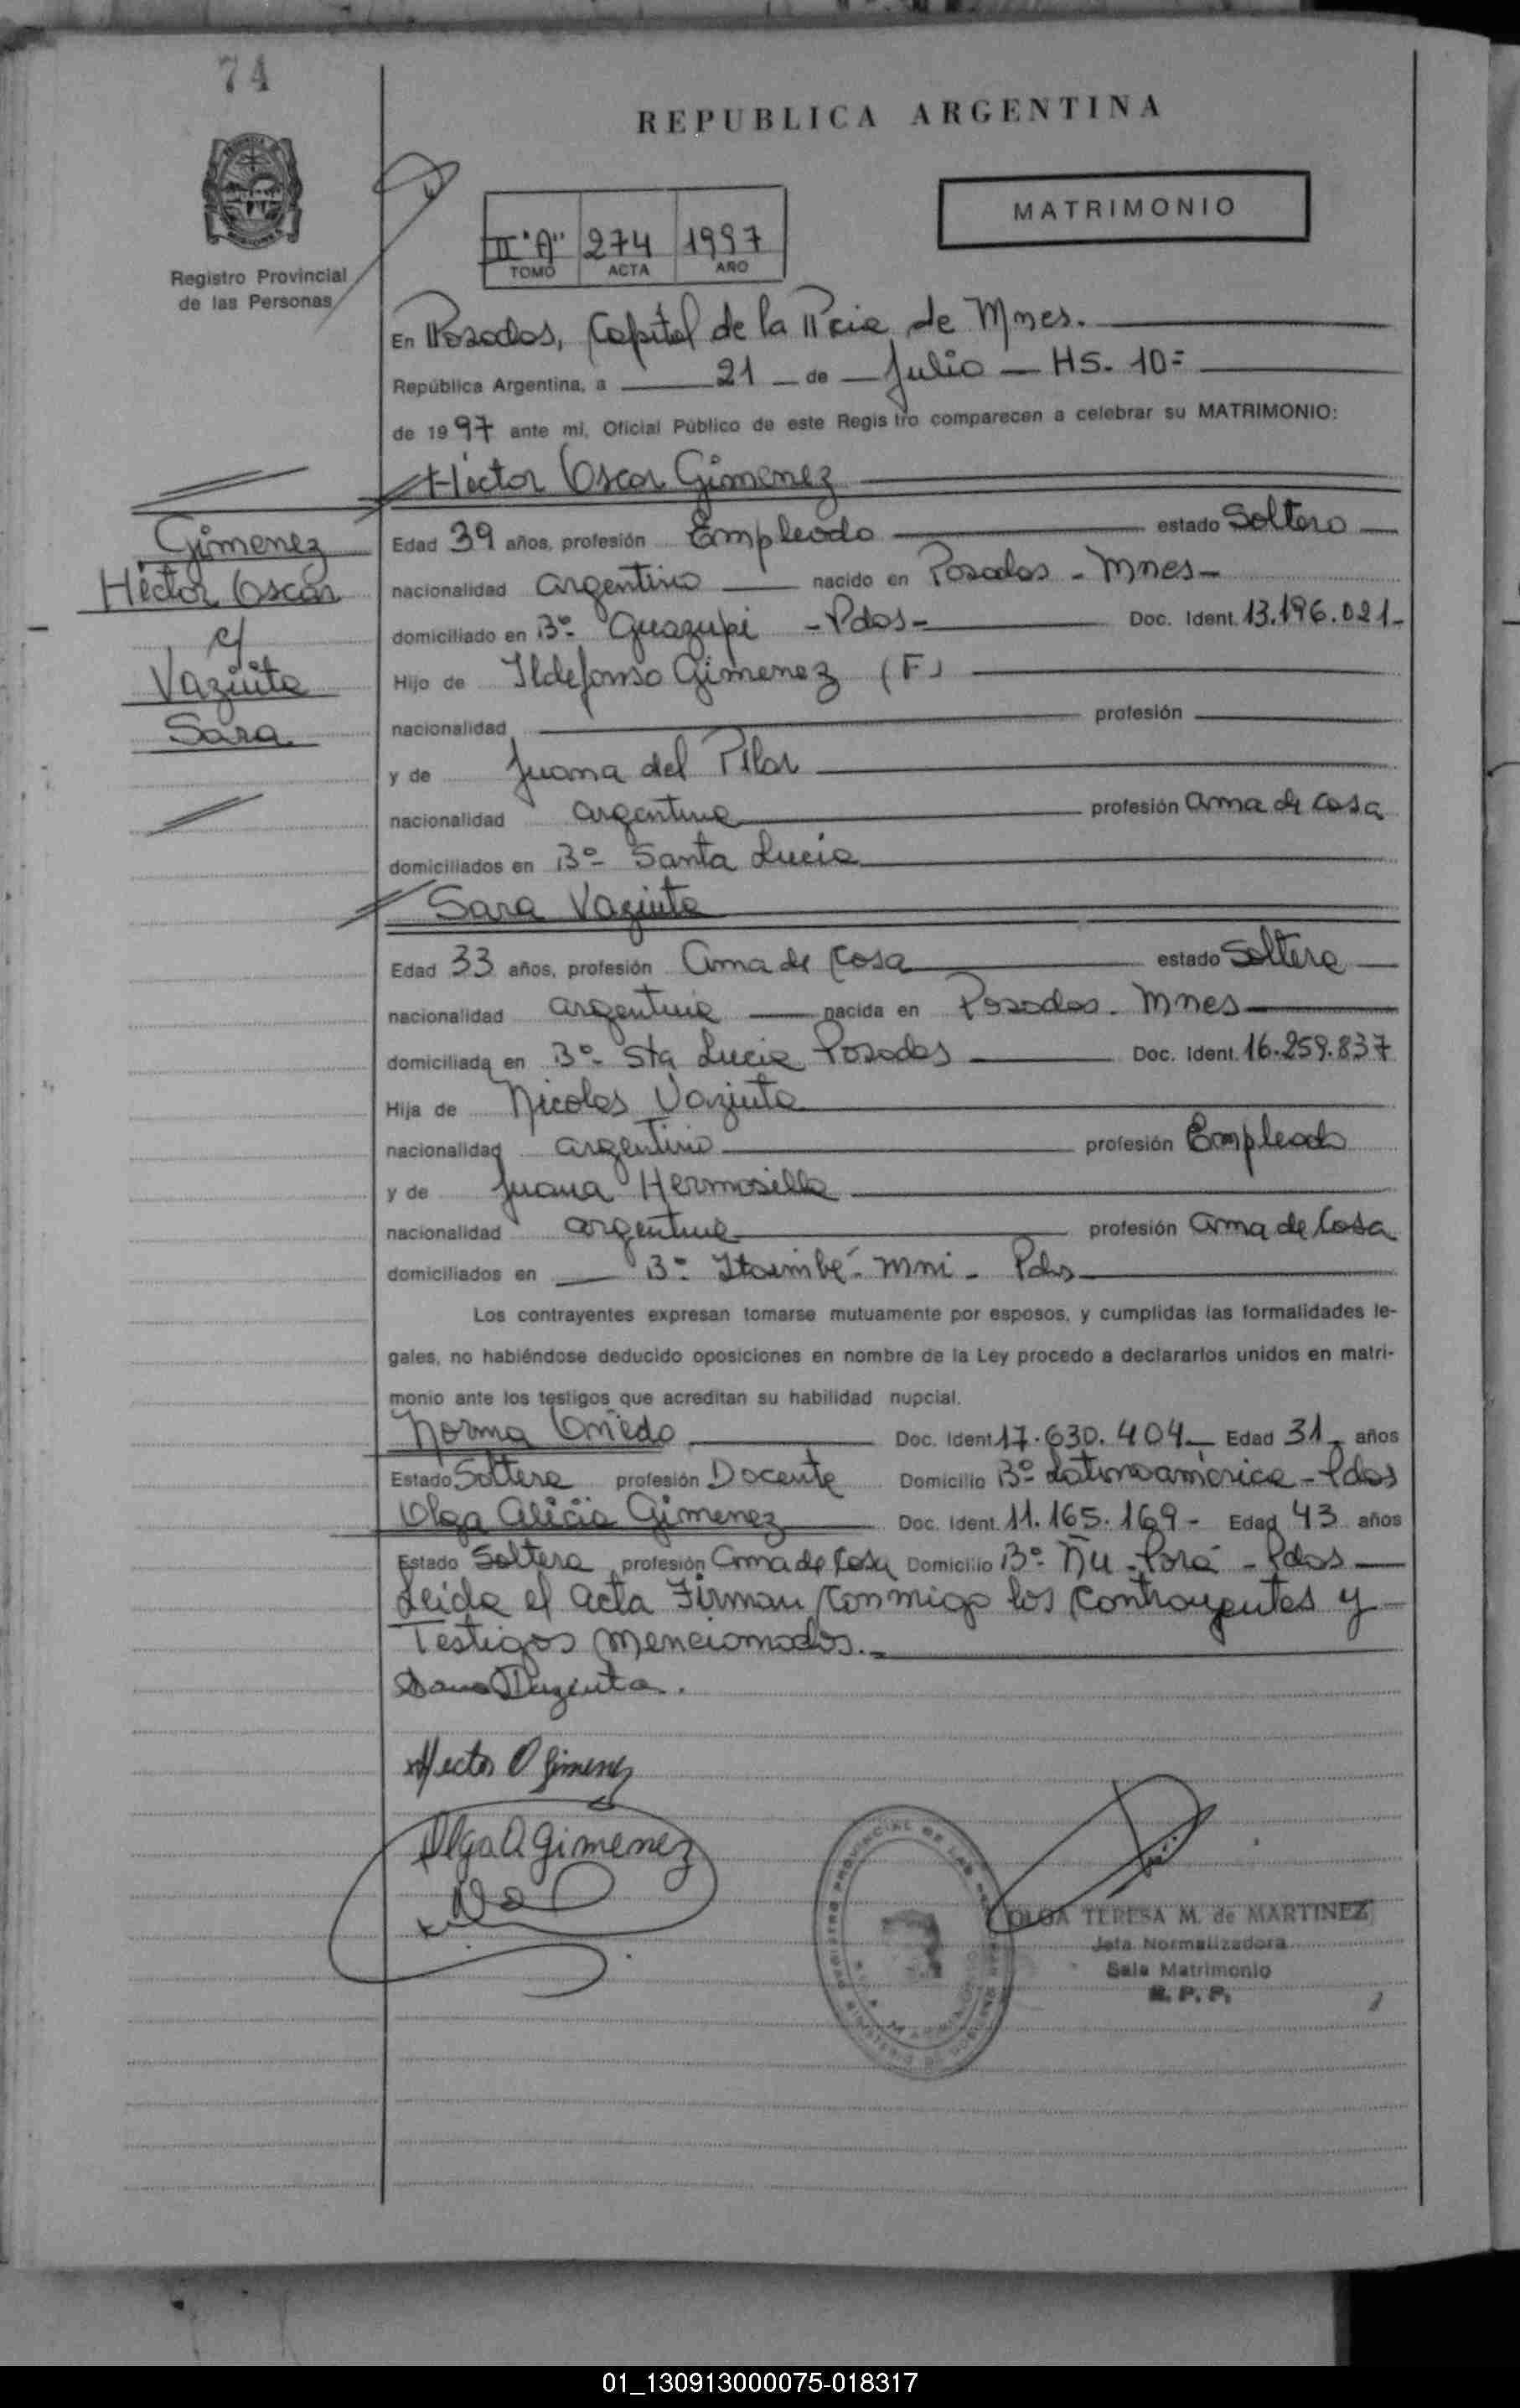 74
REPUBLICA ARGENTINA
MATRIMONIO
II "A" 274 1997
TOMO ACTA AÑO
Registro Provincial
de las Personas
En Posadas, Capital de la Pcia de Mnes.
República Argentina, a 21 de Julio - HS. 10=
de 1997 ante mi, Oficial Público de este Registro comparecen a celebrar su MATRIMONIO:
Héctor Oscar Gimenez
Gimenez
Héctor Oscar
c/
Vaziuta
Sara
Edad 39 años, profesión Empleado estado Soltero
nacionalidad argentino nacido en Posadas - Mnes-
domiciliado en B°- Guazupi - Pdos- Doc. Ident. 13.196.021-
Hijo de Ildefonso Gimenez (F)
nacionalidad profesión
y de Juana del Pilar
nacionalidad argentina profesión ama de casa
domiciliados en B°- Santa Lucia
Sara Vaziuta
Edad 33 años, profesión Ama de Casa estado Soltera
nacionalidad argentina nacida en Posadas - Mnes
domiciliada en B°- Sta Lucia Posadas Doc. Ident. 16.259.837
Hija de Nicolas Vaziuta
nacionalidad argentino profesión Empleado
y de Juana Hermosilla
nacionalidad argentina profesión ama de Casa
domiciliados en B°- Itaimbé - mni - Pdos
Los contrayentes expresan tomarse mutuamente por esposos, y cumplidas las formalidades le-
gales, no habiéndose deducido oposiciones en nombre de la Ley procedo a declararlos unidos en matri-
monio ante los testigos que acreditan su habilidad nupcial.
Norma Oviedo Doc. Ident 17.630.404 - Edad 31 - años
Estado Soltera profesión Docente Domicilio B°- Latinoamérica - Pdos
Olga Alicia Gimenez Doc. Ident. 11.165.169 - Edad 43 años
Estado Soltera profesión Ama de Casa Domicilio B°- Ñu - Porá - Pdos
Leida el Acta Firman conmigo los Contrayentes y
Testigos mencionados.-
Sara Vaziuta.
Hector O Gimenez
Olga A Gimenez
OLGA TERESA M. de MARTINEZ
Jefa Normalizadora
Sala Matrimonio
R. P. P.
01_130913000075-018317